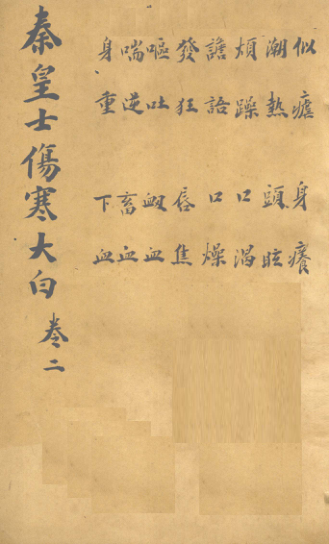 似瘧 身癢
潮熱 頭眩
煩躁 口渴
譫語 口燥
發狂 唇焦
嘔吐 衂血
喘逆 畜血
身重 下血
秦皇士傷寒大白 卷二